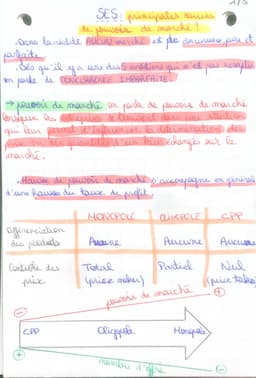 1/3
SES : principales sources
de pouvoir de marché !
. Dans la réalité AUCUN marché est de concurrence pure et
parfaite.
. Dès qu'il y a une des 5 conditions qui n'est pas remplie
on parle de CONCURRENCE IMPARFAITE.
→ pouvoir de marché on parle de pouvoir de marché
lorsque les entreprises se trouvent dans une situation
qui leur permet d'influencer la détermination des
prix ou des quantités d'un bien échangés sur le
marché.
. Hausse du pouvoir de marché s'accompagne en général
d'une hausse du taux de profit.
MONOPOLE OLIGOPOLE CPP
Différenciation
des produits Aucune Aucune Aucune
Contrôle des
prix Total
(price maker) Partiel Nul
(price taker)
⊖ pouvoir de marché ⊕
CPP Oligopole Monopole
⊕ nombre d'offre ⊖